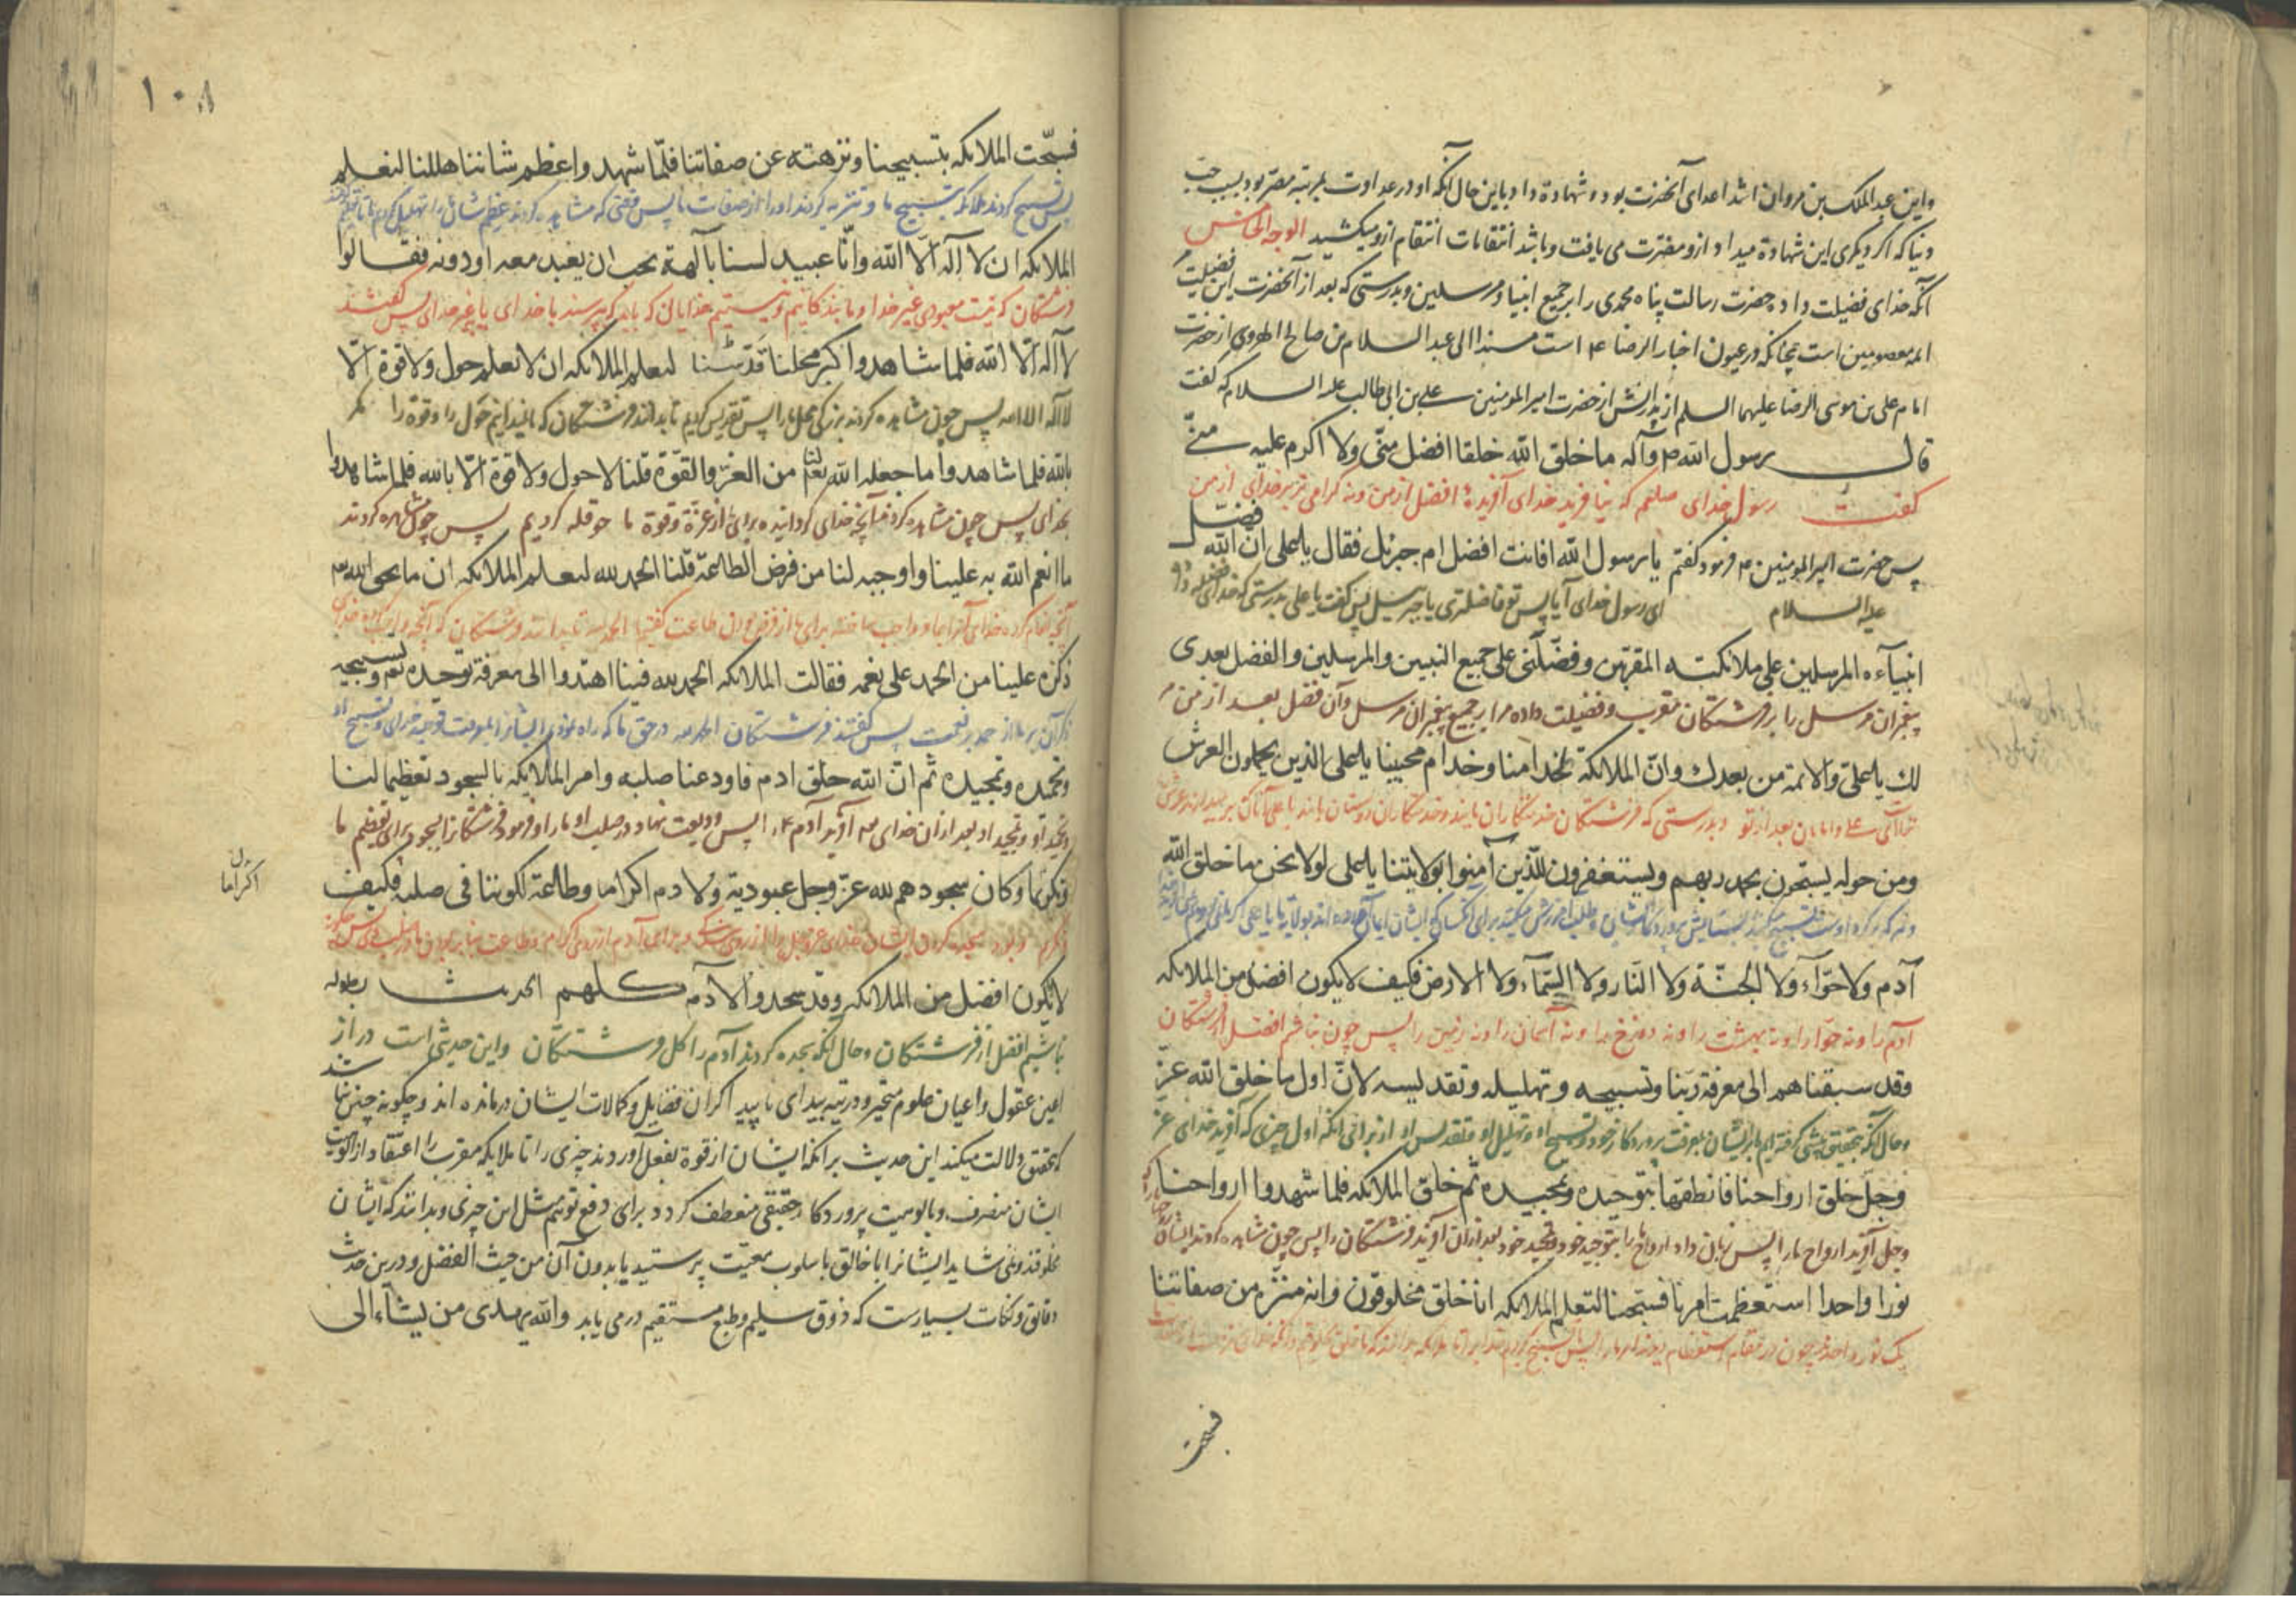 واین عبدالملک بن مروان اشد اعدای آنحضرت بود و شهادة داد باین حال آنکه او در عداوت بمرتبه مصر بود بسبب حب
دنیا که اگر دیگری این شهادة میداد ازو مضرت می یافت و باشد انتقامات انتقام ازو میکشید الوجه الخامس
آنکه خدای فضیلت داد حضرت رسالت پناه محمدی را بر جمیع انبیاء و مرسلین و بدرستی که بعد از آنحضرت این فضیلت
ائمه معصومین است چنانکه در عیون اخبار الرضا ع است مسندا الی عبد السلام بن صالح الهروی از حضرت
امام علی بن موسی الرضا علیهما السلم از پدرانش از حضرت امیر المومنین علی بن ابی طالب علیه السلام که گفت
قال رسول الله ص وآله ما خلق الله خلقا افضل منّی ولا اکرم علیه منّی
گفت رسول خدای صلعم که نیافرید خدای آفریدهٔ افضل از من و نه گرامی تر بر خدای از من
پس حضرت امیر المومنین ع فرمود گفتم یا رسول الله افانت افضل ام جبرئل فقال یا علی انّ الله فضّل
علیه السلام ای رسول خدای آیا پس تو فاضلتری یا جبرئیل پس گفت یا علی بدرستی که خدای
انبیآءه المرسلین علی ملائکته المقربین و فضّلنی علی جمیع النبیین والمرسلین والفضل بعدی
پیغمبران مرسل را بر فرشتگان مقرب و فضیلت داده مرا بر جمیع پیغمبران مرسل و آن فضل بعد از من
لك یا علی والائمة من بعدك وانّ الملائکة لخدامنا وخدام محبینا یا علی الذین یحملون العرش
تراست ای علی و امامان بعد از تو و بدرستی که فرشتگان خدمتکاران مایند و خدمتکاران دوستان مایند یا علی آنان که بر میدارند عرش
ومن حوله یسبّحون بحمد ربهم ویستغفرون للّذین آمنوا بولایتنا یا علی لولا نحن ما خلق الله
آدم ولا حوّآء ولا الجنّة ولا النّار ولا السّمآء ولا الارض فکیف لا یکون افضل من الملائکه
آدم را و نه حوّا را و نه بهشت را و نه دوزخ را و نه آسمان را و نه زمین را پس چون نباشم افضل از فرشتگان
وقد سبقناهم الی معرفة ربّنا وتسبیحه وتهلیله وتقدیسه لانّ اول ما خلق الله عزّ
و حال آنکه بتحقیق پیشی گرفته ایم بر ایشان بمعرفت پروردگار خود و تسبیح او و تهلیل او و تقدیس او از برای آنکه اول چیزی که آفرید خدای عز
وجلّ خلق ارواحنا فانطقها بتوحیده وتمجیده ثم خلق الملائکه فلما شهدوا ارواحنا
وجل آفرید ارواح ما را پس زبان داد ارواح ما را بتوحید خود و تمجید خود بعد از آن آفرید فرشتگان را پس چون مشاهده کردند ایشان
نورا واحدا استعظمت امرنا فسبّحنا لتعلم الملائکه انا خلق مخلوقون وانه منزّه من صفاتنا
فسبحت
١٠٨
فسبّحت الملائکه بتسبیحنا ونزهته عن صفاتنا فلمّا شهدوا عظم شاننا هللنا لتعلم
پس تسبیح کردند ملائکه بتسبیح ما و تنزیه کردند او را از صفات ما پس وقتی که مشاهده کردند عظم شان ما را تهلیل کردیم تا
الملائکه ان لا اله الّا الله وانّا عبید لسنا بآلهة یجب ان یعبد معه او دونه فقالوا
فرشتگان که نیست معبودی غیر خدا و ما بندگانیم و نیستیم خدایان که باید که پرسند با خدای یا بغیر خدای پس گفتند
لا اله الّا الله فلما شاهدوا کبر محلنا قدّسنا لتعلم الملائکه ان لا تعلم حول ولا قوة الّا
لا اله الا الله پس چون مشاهده کردند بزرگی محل ما را پس تقدیس کردیم تا بدانند فرشتگان که حول را و قوة را مگر
بالله فلما شاهدوا ما جعله الله لنا من العزّ والقوّة قلنا لا حول ولا قوة الّا بالله فلما شاهدوا
بخدای پس چون مشاهده کردند آنچه خدای گردانیده برای ما از عزة و قوة ما حوقله کردیم پس چون مشاهده کردند
ما انعم الله به علینا واوجبه لنا من فرض الطاعة قلنا الحمد لله لتعلم الملائکه ان ما یحق الله
ذکره علینا من الحمد علی نعمه فقالت الملائکه الحمد لله فبنا اهتدوا الی معرفة توحیده تع وتسبیحه
وتحمیده وتمجیده ثم انّ الله خلق ادم فاودعنا صلبه وامر الملائکه بالسجود تعظیما لنا
و تحمید او و تمجید او بعد از آن خدای آفرید آدم ع را پس ودیعت نهاد در صلب او ما را و فرمود فرشتگانرا بسجود برای تعظیم ما
وتکرما وکان سجودهم لله عزّ وجل عبودیة ولآدم اکراما وطاعة لکوننا فی صلبه فکیف
اکراما
لا یکون افضل من الملائکه وقد سجدوا لآدم کلهم الحدیث بطوله
نباشیم افضل از فرشتگان و حال آنکه سجده کردند آدم را کل فرشتگان و این حدیثی است دراز
اعین عقول و اعیان حلوم متحیر و در تیه بیدای ناپید اکران فضایل و کمالات ایشان درمانده اند و چگونه چنین نباشد
که بتحقیق دلالت میکند این حدیث بر انکه ایشان از قوة بفعل آوردند چیزی را تا ملایکه مقرب را اعتقاد از الوهیت
ایشان منصرف و بالوهیت پروردکار حقیقی منعطف کردد برای دفع توهّم مثل این چیزی و بدانند که ایشان
مخلوقند و نمی شاید ایشانرا با خالق باسلوب معیّت پرستید یا بدون آن من حیث الفضل و درین حدیث
دقایق و نکات بسیارست که ذوق سلیم و طبع مستقیم در می یابد والله یهدی من یشآء الی